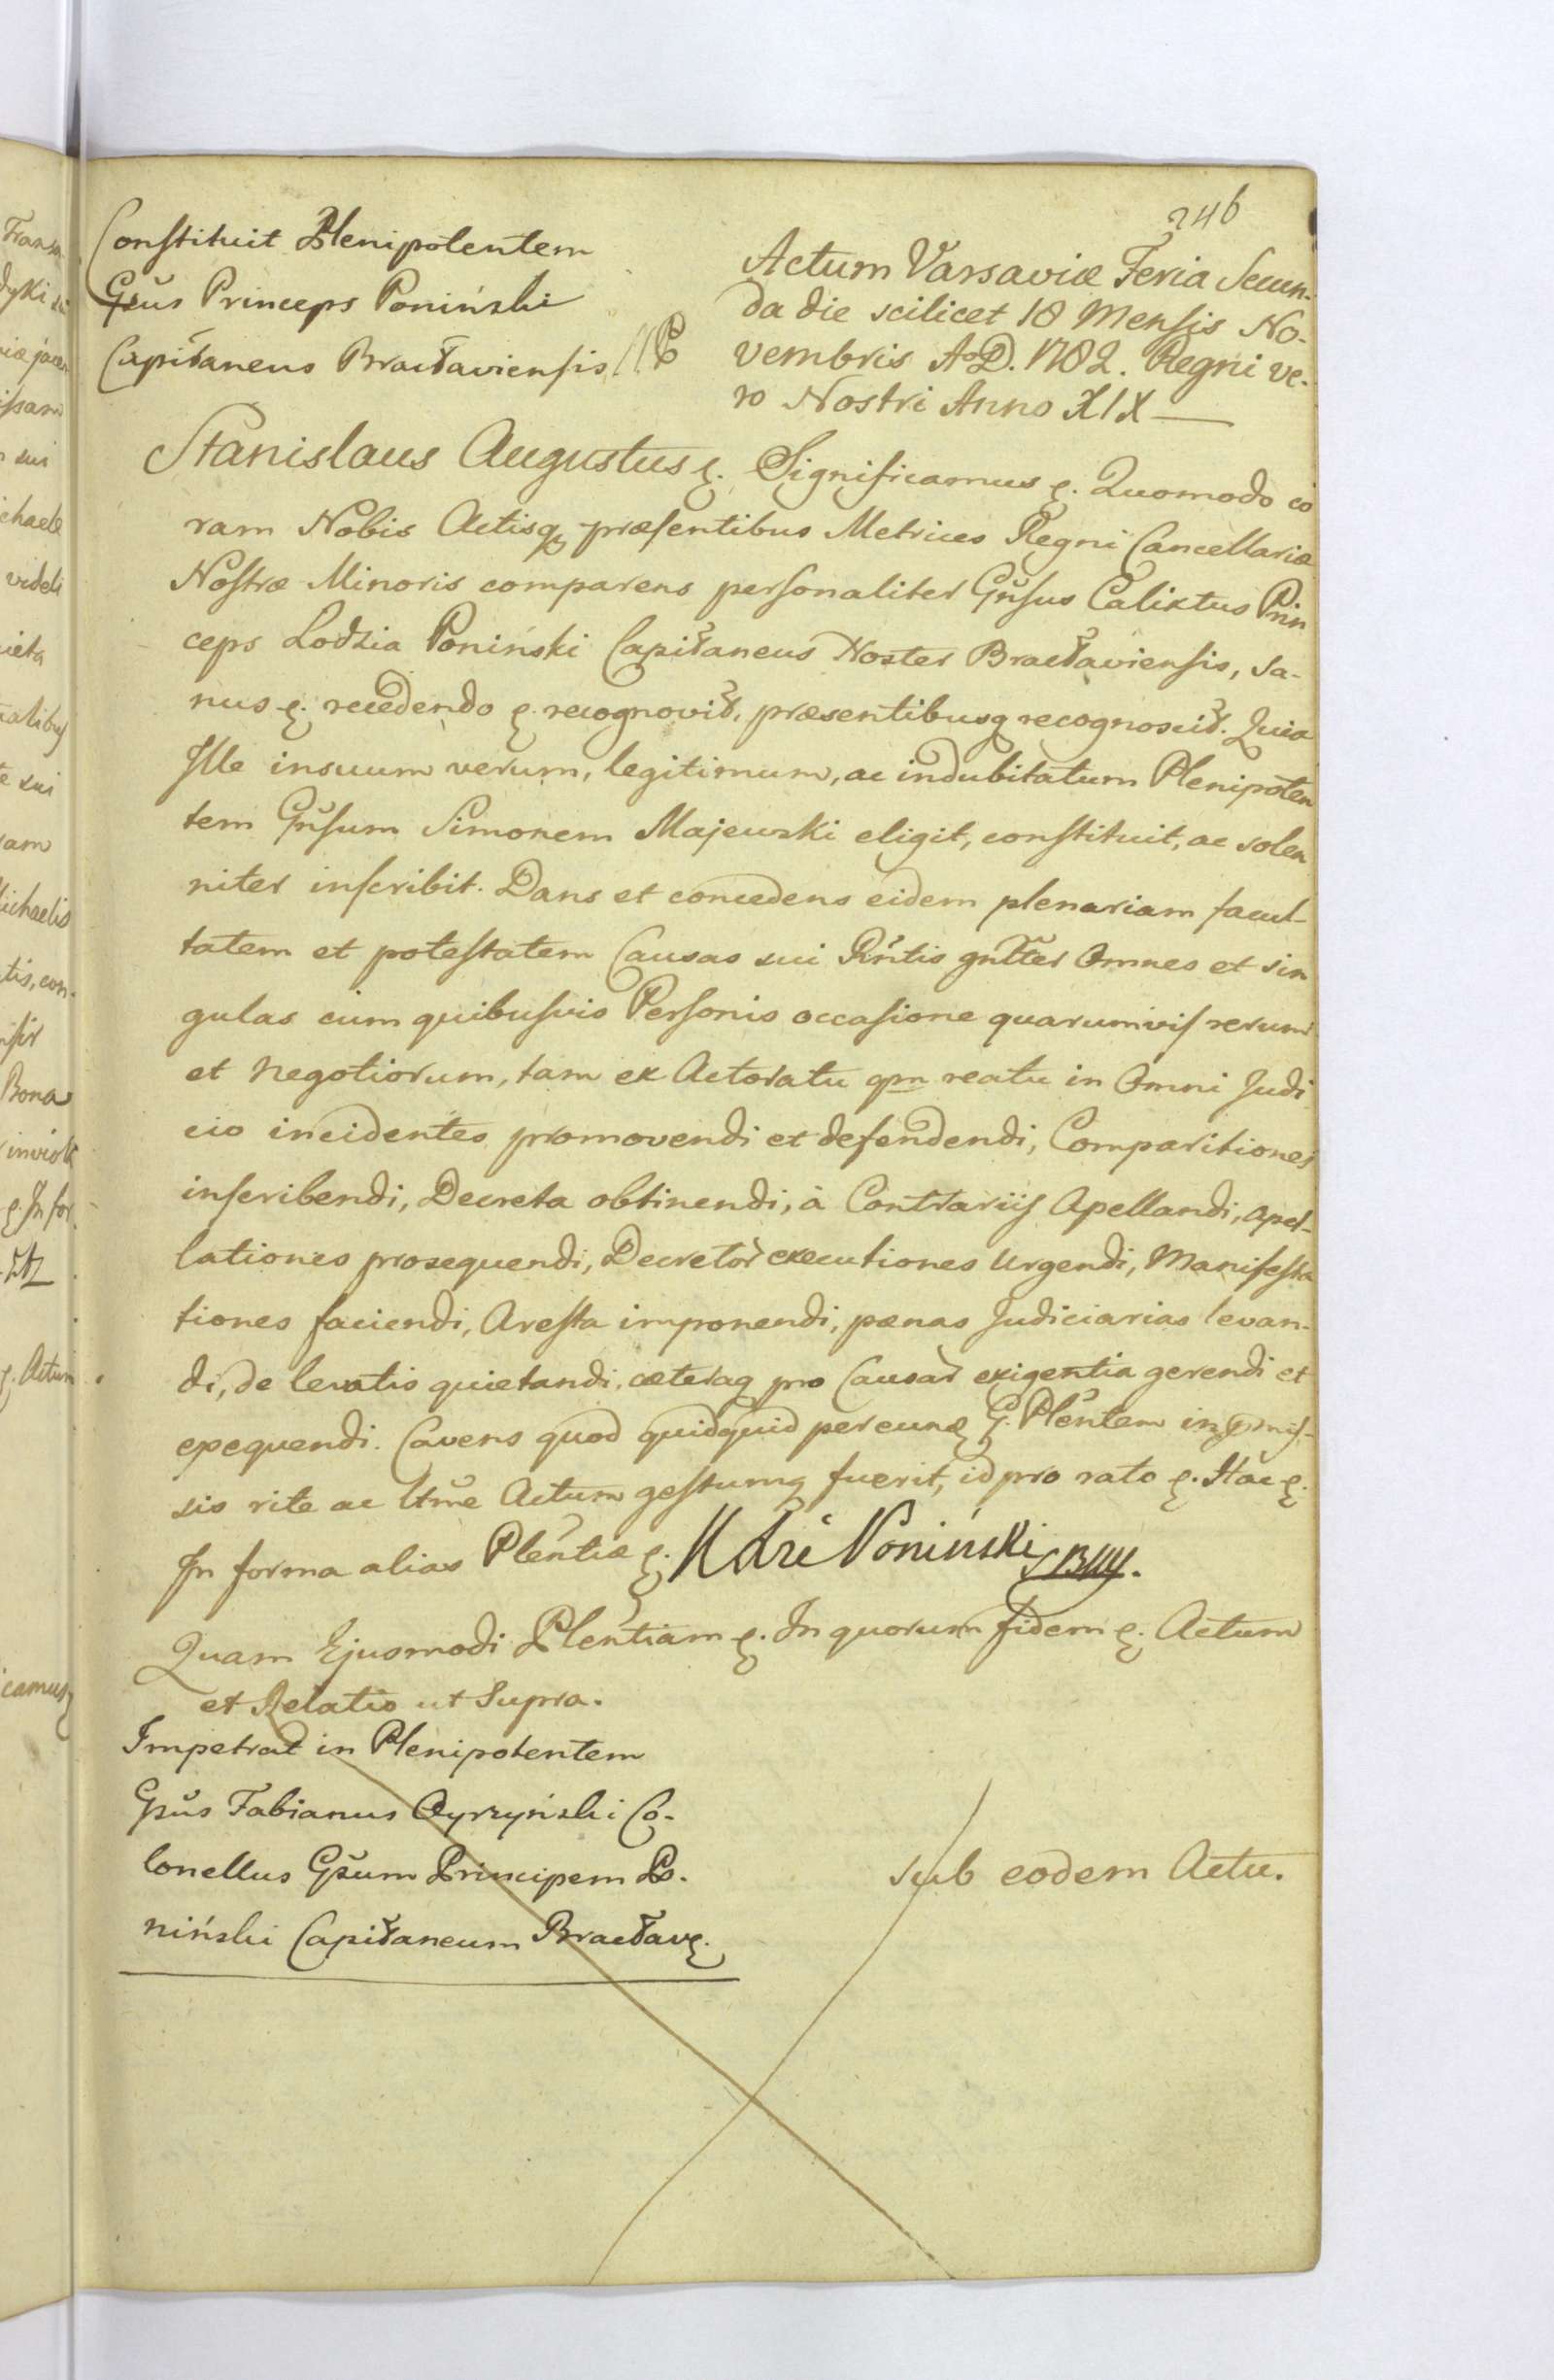 246
Constituit Plenipotentem
Gsus Princeps Poniński
Capitaneus Bractaviensis
Actum Varsaviæ Feria Secun-
da die scilicet 18 Mensis No-
vembris A.D. 1782. Regni ve-
ro Nostri Anno XIX
Stanislaus Augustus &. Significamus &. Quomodo co
ram Nobis Actisq præsentibus Metrices Regni Cancellariæ
Nostræ Minoris comparens personaliter Gnsus Calixtus Prin
ceps Lodzia Poniński Capitaneus Noster Bractaviensis, Sa-
nus &. recedendo &. recognovit, præsentibusq recognoscit. Quia
Ille in suum verum, legitimum, ac indubitatum Plenipoten
tem Gnsum Simonem Majewski eligit, constituit, ac solen
niter inscribit. Dans et concedens eidem plenariam facul-
tatem et potestatem Causas sui Pntis gnlter Omnes et sin
gulas cum quibusvis Personis occasione quarumvis rerum
et Negotiorum, tam ex Actoratu qm reatu in Omni Judi
cio incidentes promovendi et defendendi, Comparitiones
inscribendi, Decreta obtinendi, à Contrariis Apellandi, apel-
lationes prosequendi, Decretor executiones Urgendi, Manifesta
tiones faciendi, Aresta imponendi, pænas Judiciarias levan-
di, de levatis quietandi, cæteraq pro Causar exigentia gerendi et
exequendi. Cavens quod quidquid per eunq G. Plentem in pmis-
sis rite ac ltme Actum gestumq fuerit, id pro rato &. Hac &.
In forma alias Plentiæ &. Poniński
Quam Ejusmodi Plentiam &. In quorum fidem &. Actum
et Relatio ut Supra.
Impetrat in Plenipotentem
Gsus Fabianus Co-
lonellus Gsum Principem Po-
niński Capitaneum Bractav&.
Sub eodem Actu.